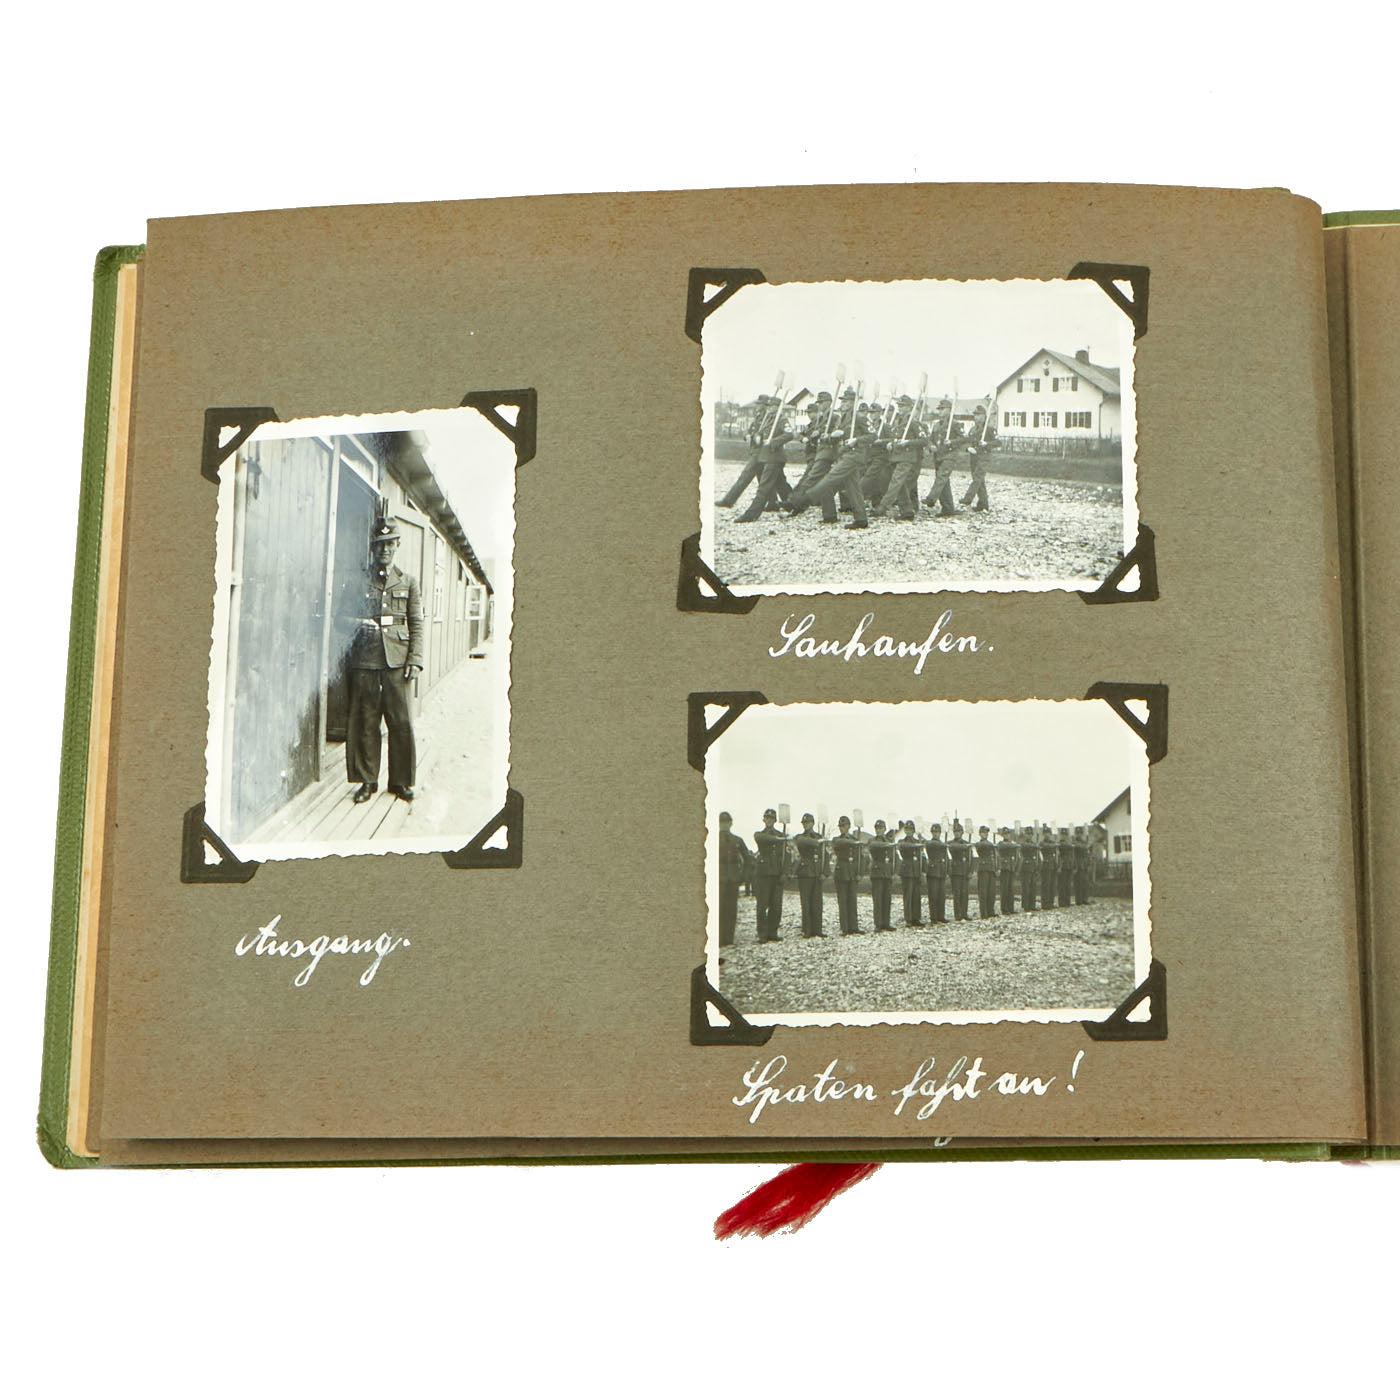 Ausgang.
Sauhaufen.
Spaten faßt an!